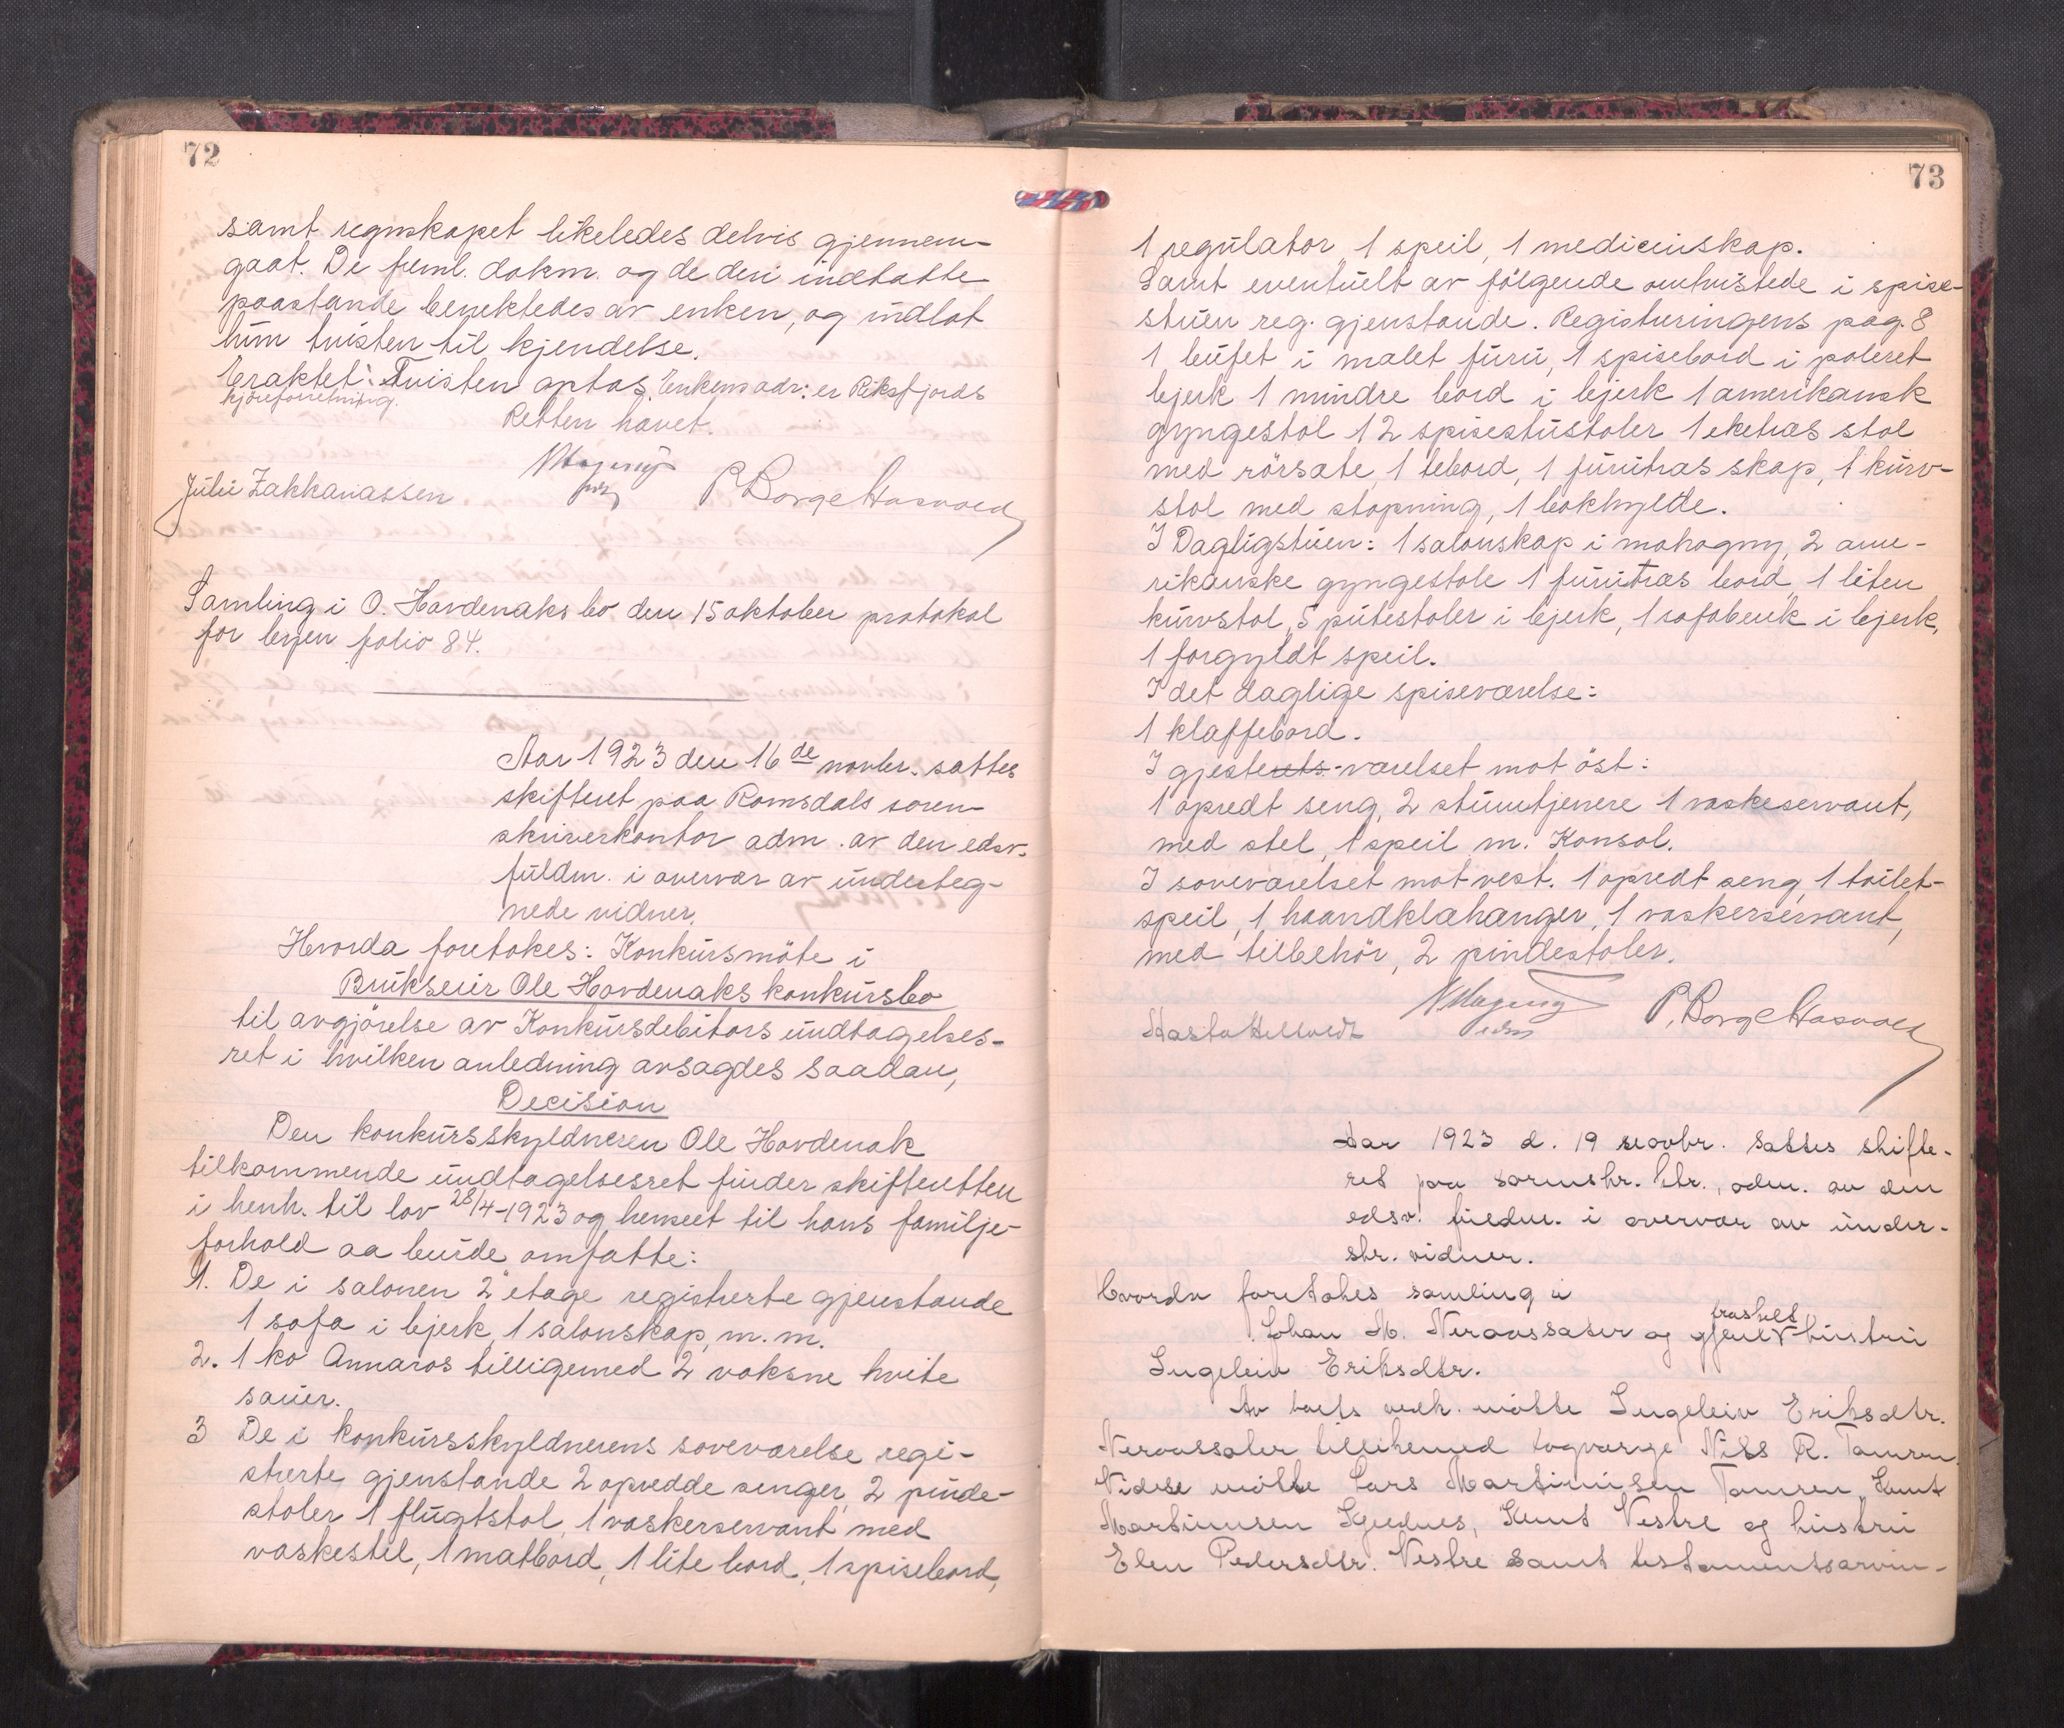 72
samt regnskapet likeledes delvis gjennem-
gaat. De freml. dokm. og de deri indtatte
paastande benektedes av enken, og indlot
hun tvisten til kjendelse.
Eraktet: Tvisten optas. Enkens adr: er Riksfjords
kjöreforretning.
Retten hævet.
Julie Zakkariassen P. Borge Hasvold
Samling i O. Hovdenaks bo den 15 oktober protokol
for byen folio 84.
Aar 1923 den 16de novbr. sattes
skifteret paa Romsdals soren-
skriverkontor adm. av den edsv.
fuldm. i overvær av underteg-
nede vidner.
Hvorda foretokes: Konkursmöte i
Brukseier Ole Hovdenaks konkursbo
til avgjörelse av Konkursdebitors undtagelses-
ret i hvilken anledning avsagdes saadan,
Decision
Den konkursskyldneren Ole Hovdenak
tilkommende undtagelsesret finder skifteretten
i henh. til lov 28/4-1923 og henseet til hans familje-
forhold aa burde omfatte:
1. De i salonen 2' etage registrerte gjenstande
1 sofa i bjerk, 1 salonskap, m. m.
2. 1 ko Annaros tilligemed 2 voksne hvite
sauer.
3 De i konkursskyldnerens soveværelse regi-
strerte gjenstande 2 opredde senger, 2 pinde-
stoler 1 flugtstol, 1 vaskerservant med
vaskestel, 1 matbord, 1 lite bord, 1 spisebord,
73
1 regulator, 1 speil, 1 medicinskap.
Samt eventuelt av fölgende omtvistede i spise-
stuen reg. gjenstande. Registreringens pag. 8
1 bufet i malet furu, 1 spisebord i poleret
bjerk 1 mindre bord i bjerk 1 amerikansk
gyngestol 12 spisestustoler 1 eketræs stol
med rörsæte, 1 tebord, 1 furutræs skap, 1 kurv-
stol med stopning, 1 bokhylde.
I Dagligstuen: 1 salonskap i mahogny, 2 ame-
rikanske gyngestole 1 furutræs bord, 1 liten
kurvstol, 5 putestoler i bjerk, 1 sofabenk i bjerk,
1 forgyldt speil.
I det daglige spiseværelse:
1 klaffebord.
I gjesterets-værelset mot öst:
1 opredt seng, 2 stumtjenere 1 vaskeservant,
med stel, 1 speil m. Konsol.
I soveværelset mot vest. 1 opredt seng, 1 toilet-
speil, 1 haandklæhænger, 1 vaskerservant,
med tilbehör, 2 pindestoler.
P. Borge Hasvold
Aar 1923 d. 19 novbr. sattes skifte-
ret paa sornskr. ktr., adm. av den
edsv. fuldm. i overvær av under-
skr. vidner.
Hvorda foretokes samling i
fraskilt
Johan M. Neraassater og gjenl. hustru
Ingeleiv Eriksdtr.
Av boets vedk. mötte Ingeleiv Eriksdtr.
Neraassater tillikemed lagværge Nils R. Tamren.
Videre mötte Lars Martinusen Tamren, Knut
Martinusen, Knut Vestre og hustru
Elen Pedersdtr. Vestre samt testamentsarvin-